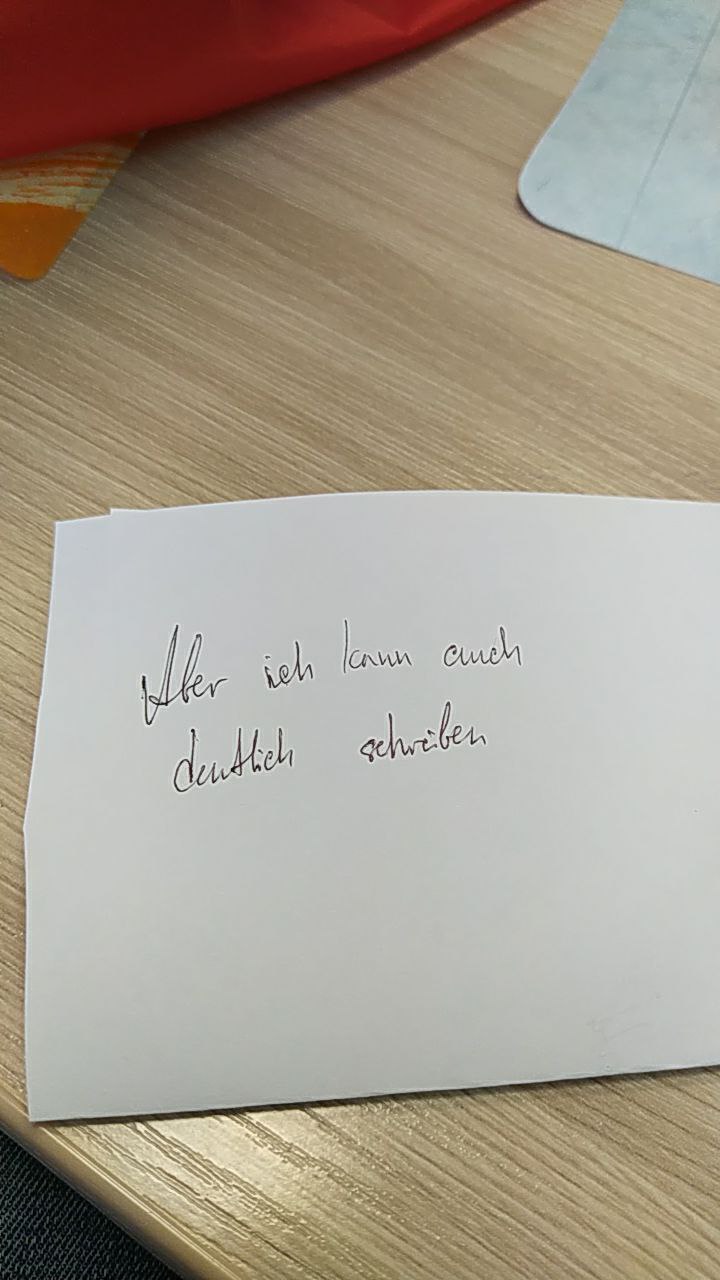 Aber ich kann auch
deutlich schreiben